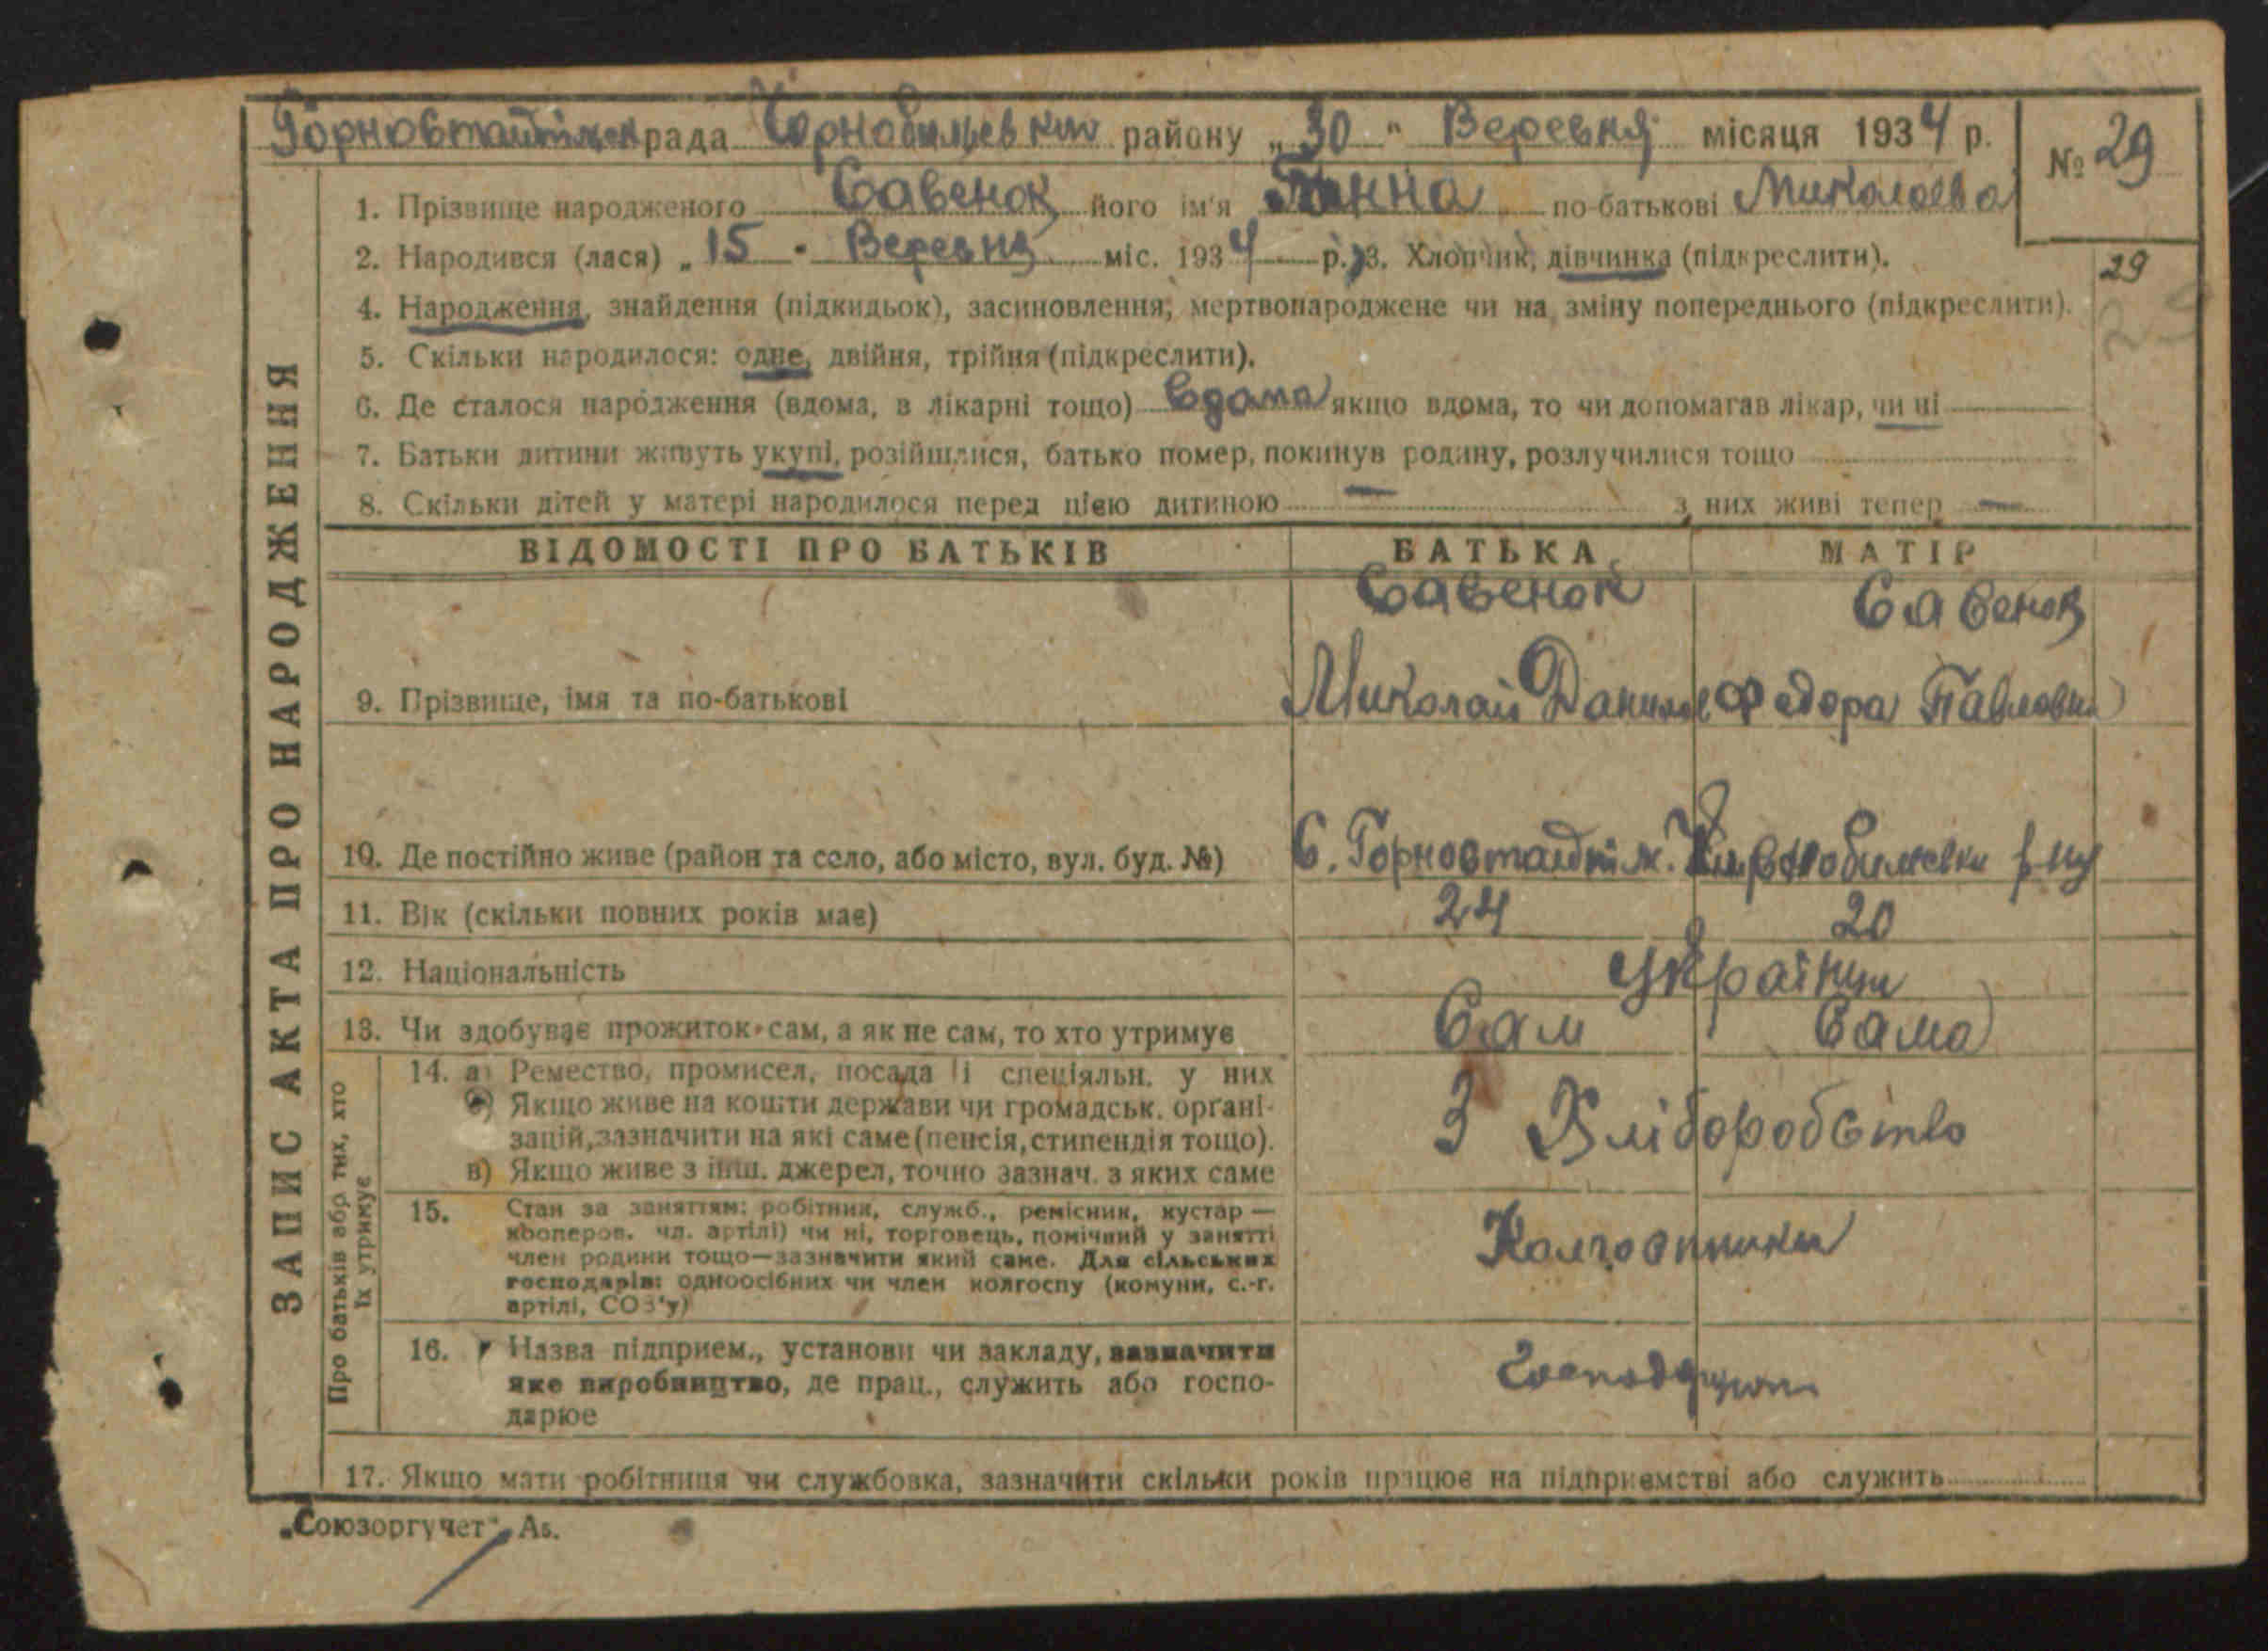 рада Чорнобильський району „30" Вересня місяця 1934 р. № 29
1. Прізвище народженого Савенок його ім'я Ганна по-батькові Миколаева
2. Народився (лася) „15" Вересня міс. 1934 р. 3. Хлопчик, дівчинка (підкреслити).
29
4. Народження, знайдення (підкидьок), засиновлення, мертвонароджене чи на зміну попереднього (підкреслити).
5. Скільки народилося: одне, двійня, трійня (підкреслити).
6. Де сталося народження (вдома, в лікарні тощо) вдома якщо вдома, то чи допомагав лікар, чи ні
7. Батьки дитини живуть укупі, розійшлися, батько помер, покинув родину, розлучилися тощо
8. Скільки дітей у матері народилося перед цією дитиною — з них живі тепер —
ЗАПИС АКТА ПРО НАРОДЖЕННЯ
ВІДОМОСТІ ПРО БАТЬКІВ БАТЬКА МАТІР
Савенок Савенок
9. Прізвище, імя та по-батькові Миколай Данилов Федора Павловн
10. Де постійно живе (район та село, або місто, вул. буд. №) С.
11. Вік (скільки повних років має) 24 20
12. Національність Українци
13. Чи здобуває прожиток сам, а як не сам, то хто утримує Сам Сама
Про батьків або тих, хто
їх утримує
14. а) Ремество, промисел, посада й спеціяльн. у них
б) Якщо живе на кошти держави чи громадськ. органі-
зацій, зазначити на які саме (пенсія, стипендія тощо). З Хліборобство
в) Якщо живе з інш. джерел, точно зазнач. з яких саме
15. Стан за заняттям: робітник, служб., ремісник, кустар —
кооперов. чл. артілі) чи ні, торговець, помічний у занятті
член родини тощо—зазначити який саме. Для сільських Колгоспники
господарів: одноосібних чи член колгоспу (комуни, с.-г.
артілі, СОЗ'у)
16. Назва підприєм., установи чи закладу, зазначити
яке виробництво, де прац., служить або госпо-
дарює
17. Якщо мати робітниця чи службовка, зазначити скільки років працює на підприємстві або служить
„Союзоргучет" А5.